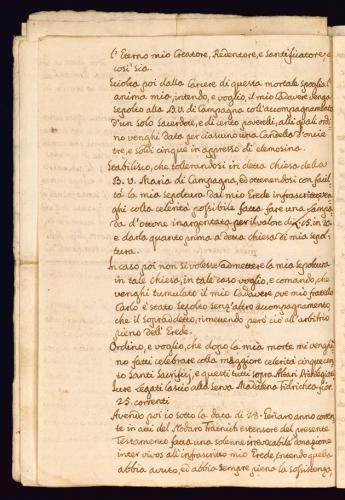 l'Eterno mio Creatore, Redentore, e Santificatore, e
così sia.
Sciolta poi dalla Carcere di questa mortale spoglia l'
anima mia, intendo, e voglio, il mio Cadavere venga
sepolto alla B.V. di Campagna coll'accompagnamento
d'un solo Sacerdote, e di cento poverelli, alli quali ordi
no venghi data per ciascuno una Candella d'oncie
tre, e soldi cinque in appresso di elemosina.
Stabilisco, che tollerandosi in detta chiesa della
B. V. Maria di Campagna, ed ottenendosi con facili
tà la mia sepoltura dal mio Erede infrascritto ven
ghi colla celerità possibile fatta fare una lampa
da d'ottone inargentata per il valore di 15. in 20
e darla quanto prima a detta chiesa di mia sepol
tura.
In caso poi non si volesse admettere la mia sepoltura
in tale chiesa, in tale caso voglio, e comando, che
venghi tumulato il mio Cadavere ove mio fratello
Carlo è stato sepolto senz'altro accompagnamento
che il sopraddetto, rimettendo però ciò all'arbitrio
pieno dell'Erede.
Ordino, e voglio, che dopo la mia morte mi venghi
no fatti celebrare colla maggiore celerità cinquecen
to Santi Sacrificj, e questi tutti sopra Altari Privilegiati
Jure Legati lascio alla Serva Madalena
25. correnti
Avendo poi io sotto la data di 28. Genaro anno corren
te in atti del Nottaro estensore del presente
Testamento fatta una solenne irrevocabile donazione
inter vivos all'infrascritto mio Erede, intendo quella
abbia avuto, ed abbia sempre piena la sussistenza,